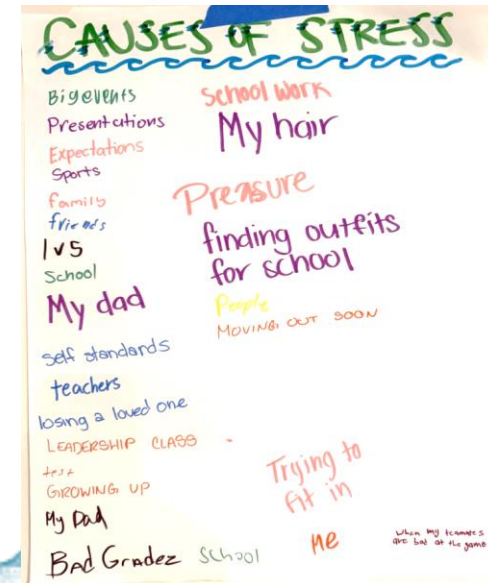 CAUSES OF STRESS
Big events
Presentations
Expectations
Sports
family
friends
1v5
School
My dad
self standards
teachers
losing a loved one
LEADERSHIP CLASS
test
GROWING UP
My Dad
Bad Gradez
School
School work
My hair
Preasure
finding outfits
for school
People
MOVING OUT SOON
Trying to
fit in
Me
when my teammates
are bad at the game